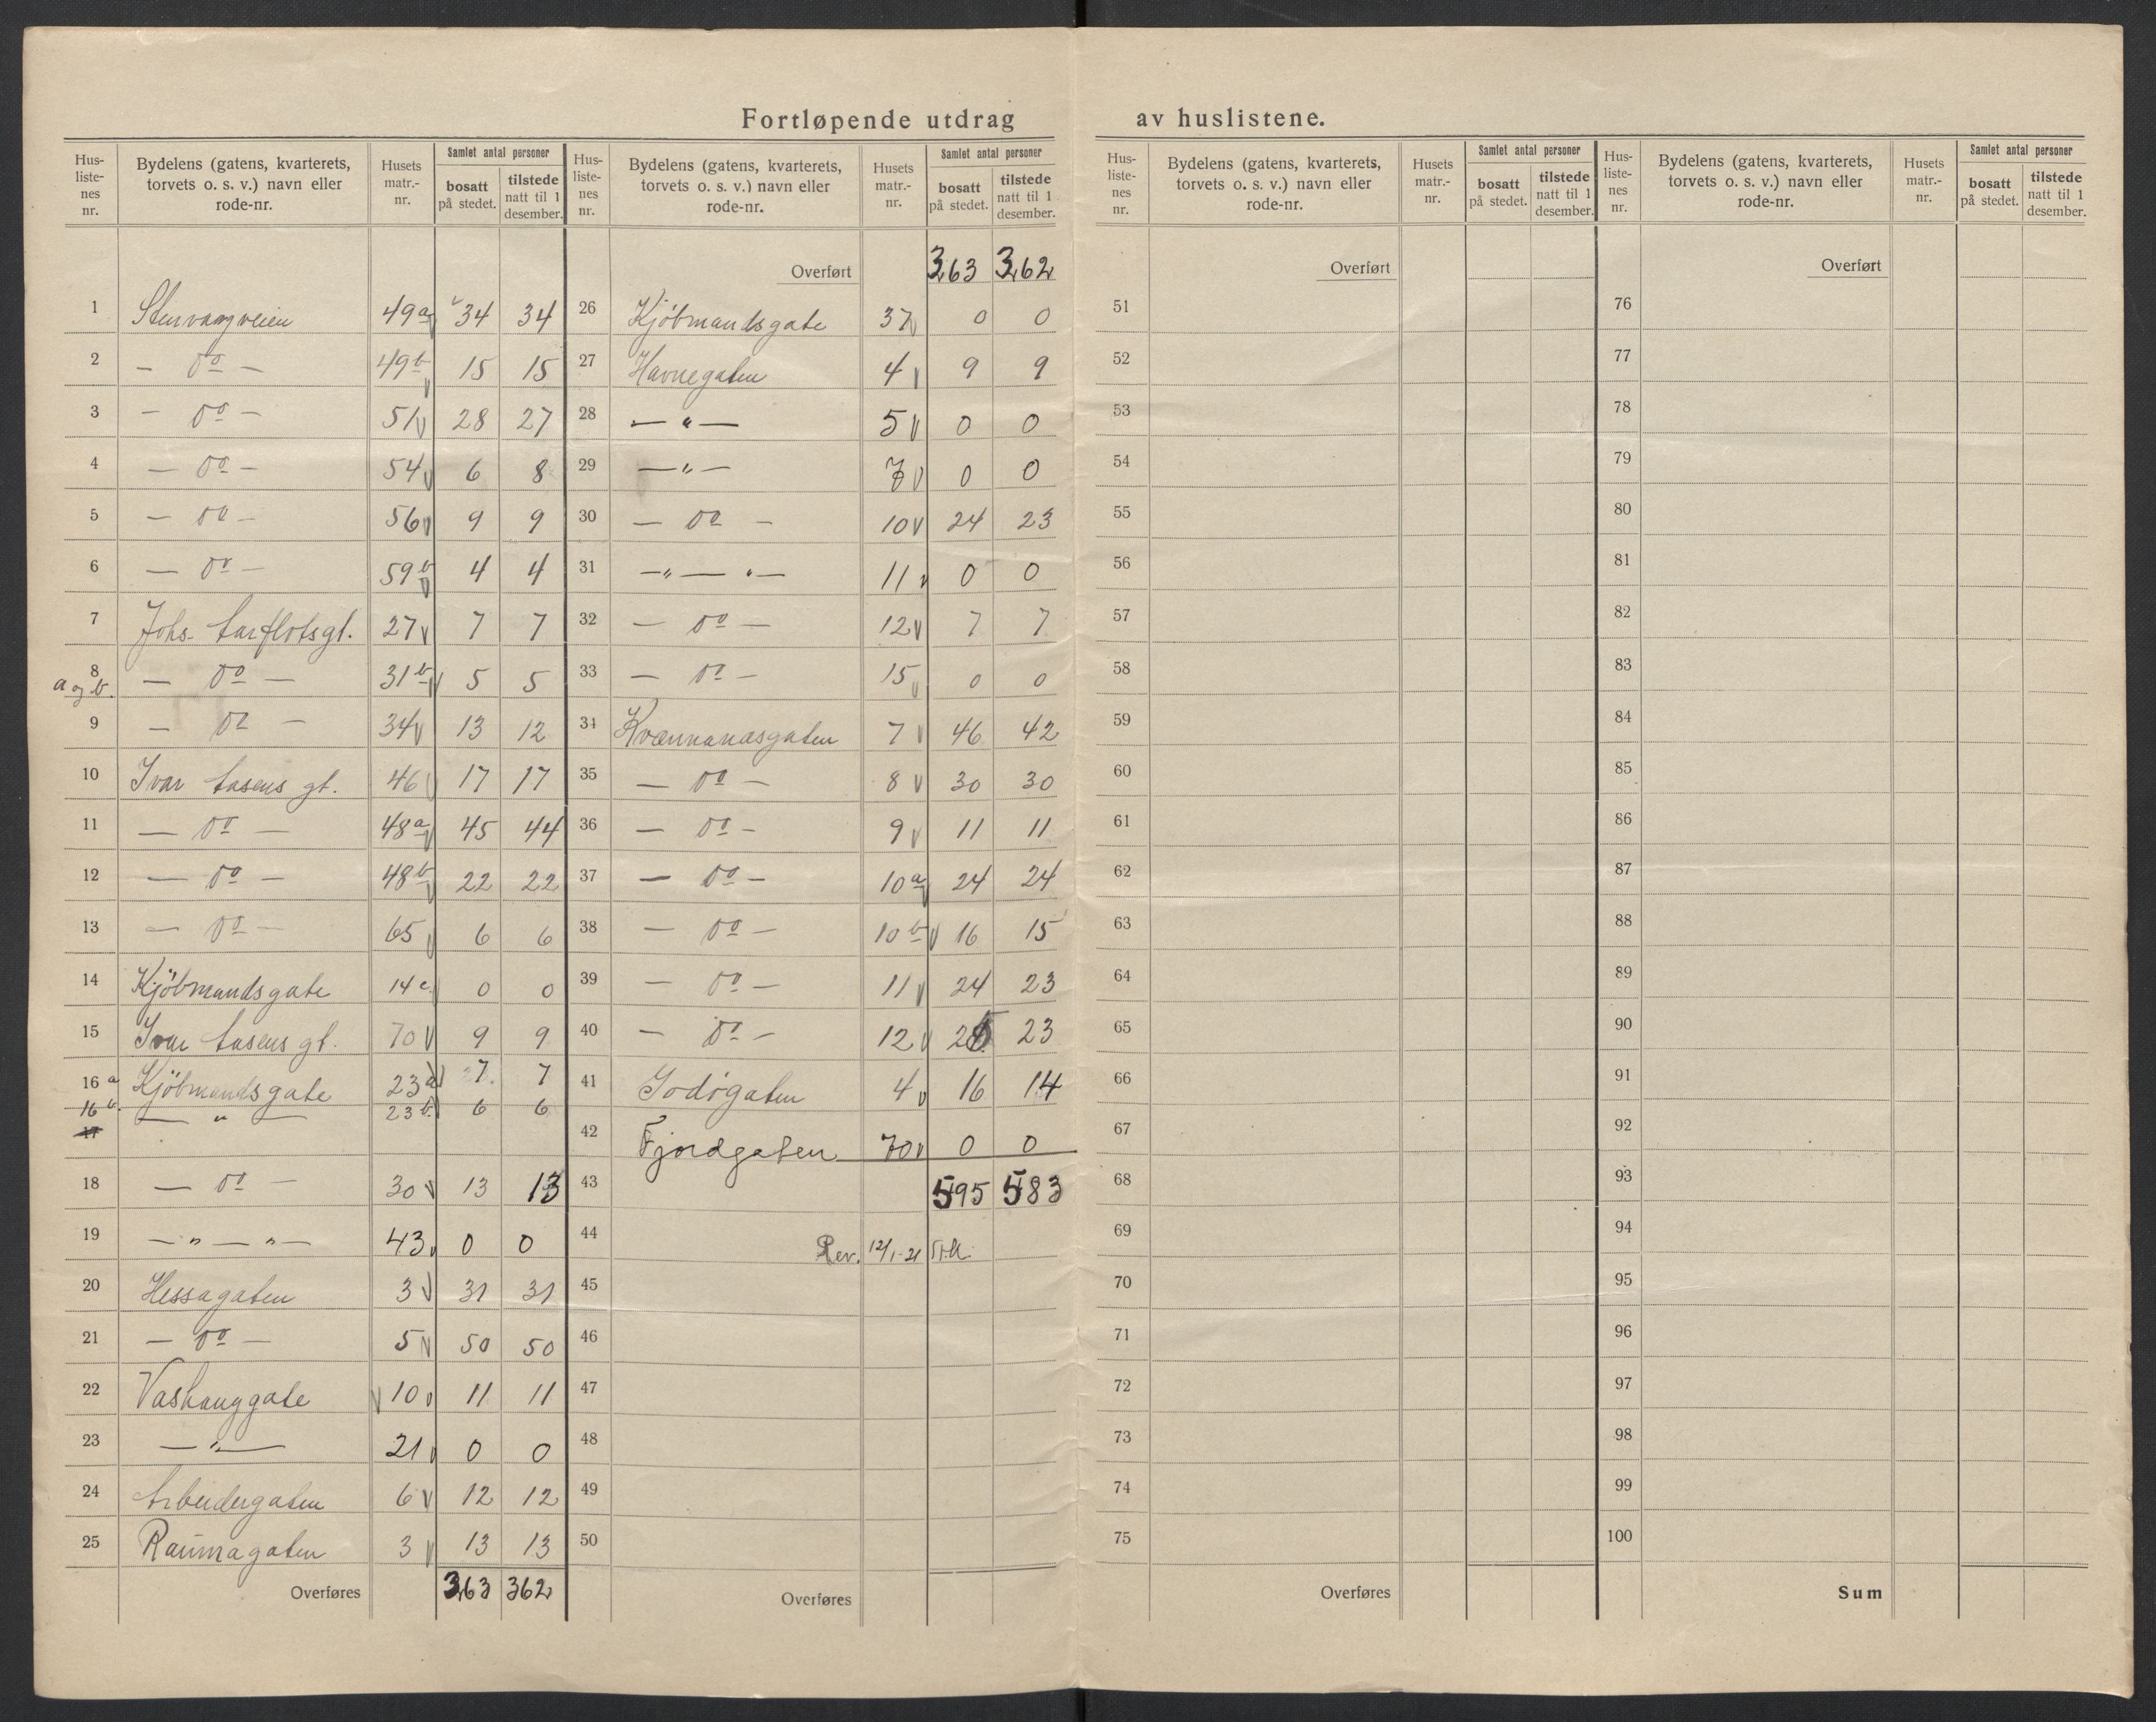 Fortløpende utdrag av huslistene.
Hus-liste-nes nr. | Bydelens (gatens, kvarterets, torvets o. s. v.) navn eller rode-nr. | Husets matr.-nr. | Samlet antal personer bosatt på stedet. | tilstede natt til 1 desember.
1 Stenvaagveien 49a 34 34
2 — do — 49b 15 15
3 — do — 51 28 27
4 — do — 54 6 8
5 — do — 56 9 9
6 — do — 59b 4 4
7 Johs. Aarflotsgt. 27 7 7
8 a og b. — do — 31b 5 5
9 — do — 34 13 12
10 Ivar Aasens gt. 46 17 17
11 — do — 48a 45 44
12 — do — 48b 22 22
13 — do — 65 6 6
14 Kjöbmandsgate 14c. 0 0
15 Ivar Aasens gt. 70 9 9
16 a Kjöbmandsgate 23a 7. 7
16 b. — " — 23b. 6 6
17
18 — do — 30 13 13
19 — " — " — 43 0 0
20 Hessagaten 3 31 31
21 — do — 5 50 50
22 Vashauggate 10 11 11
23 — " — 21 0 0
24 Arbeidergaten 6 12 12
25 Raumagaten 3 13 13
Overføres 363 362
Hus-liste-nes nr. | Bydelens (gatens, kvarterets, torvets o. s. v.) navn eller rode-nr. | Husets matr.-nr. | Samlet antal personer bosatt på stedet. | tilstede natt til 1 desember.
Overført 363 362
26 Kjöbmandsgate 37 0 0
27 Havnegaten 4 9 9
28 — " — 5 0 0
29 — " — 7 0 0
30 — do — 10 24 23
31 — " — " — 11 0 0
32 — do — 12 7 7
33 — do — 15 0 0
34 Kvænnanæsgaten 7 46 42
35 — do — 8 30 30
36 — do — 9 11 11
37 — do — 10a 24 24
38 — do — 10b 16 15
39 — do — 11 24 23
40 — do — 12 25 23
41 Sodögaten 4 16 14
42 Fjordgaten 70 0 0
43 595 583
44 Rev. 12/1-21
45
46
47
48
49
50
Overføres
Hus-liste-nes nr. | Bydelens (gatens, kvarterets, torvets o. s. v.) navn eller rode-nr. | Husets matr.-nr. | Samlet antal personer bosatt på stedet. | tilstede natt til 1 desember.
Overført
51
52
53
54
55
56
57
58
59
60
61
62
63
64
65
66
67
68
69
70
71
72
73
74
75
Overføres
Hus-liste-nes nr. | Bydelens (gatens, kvarterets, torvets o. s. v.) navn eller rode-nr. | Husets matr.-nr. | Samlet antal personer bosatt på stedet. | tilstede natt til 1 desember.
Overført
76
77
78
79
80
81
82
83
84
85
86
87
88
89
90
91
92
93
94
95
96
97
98
99
100
Sum